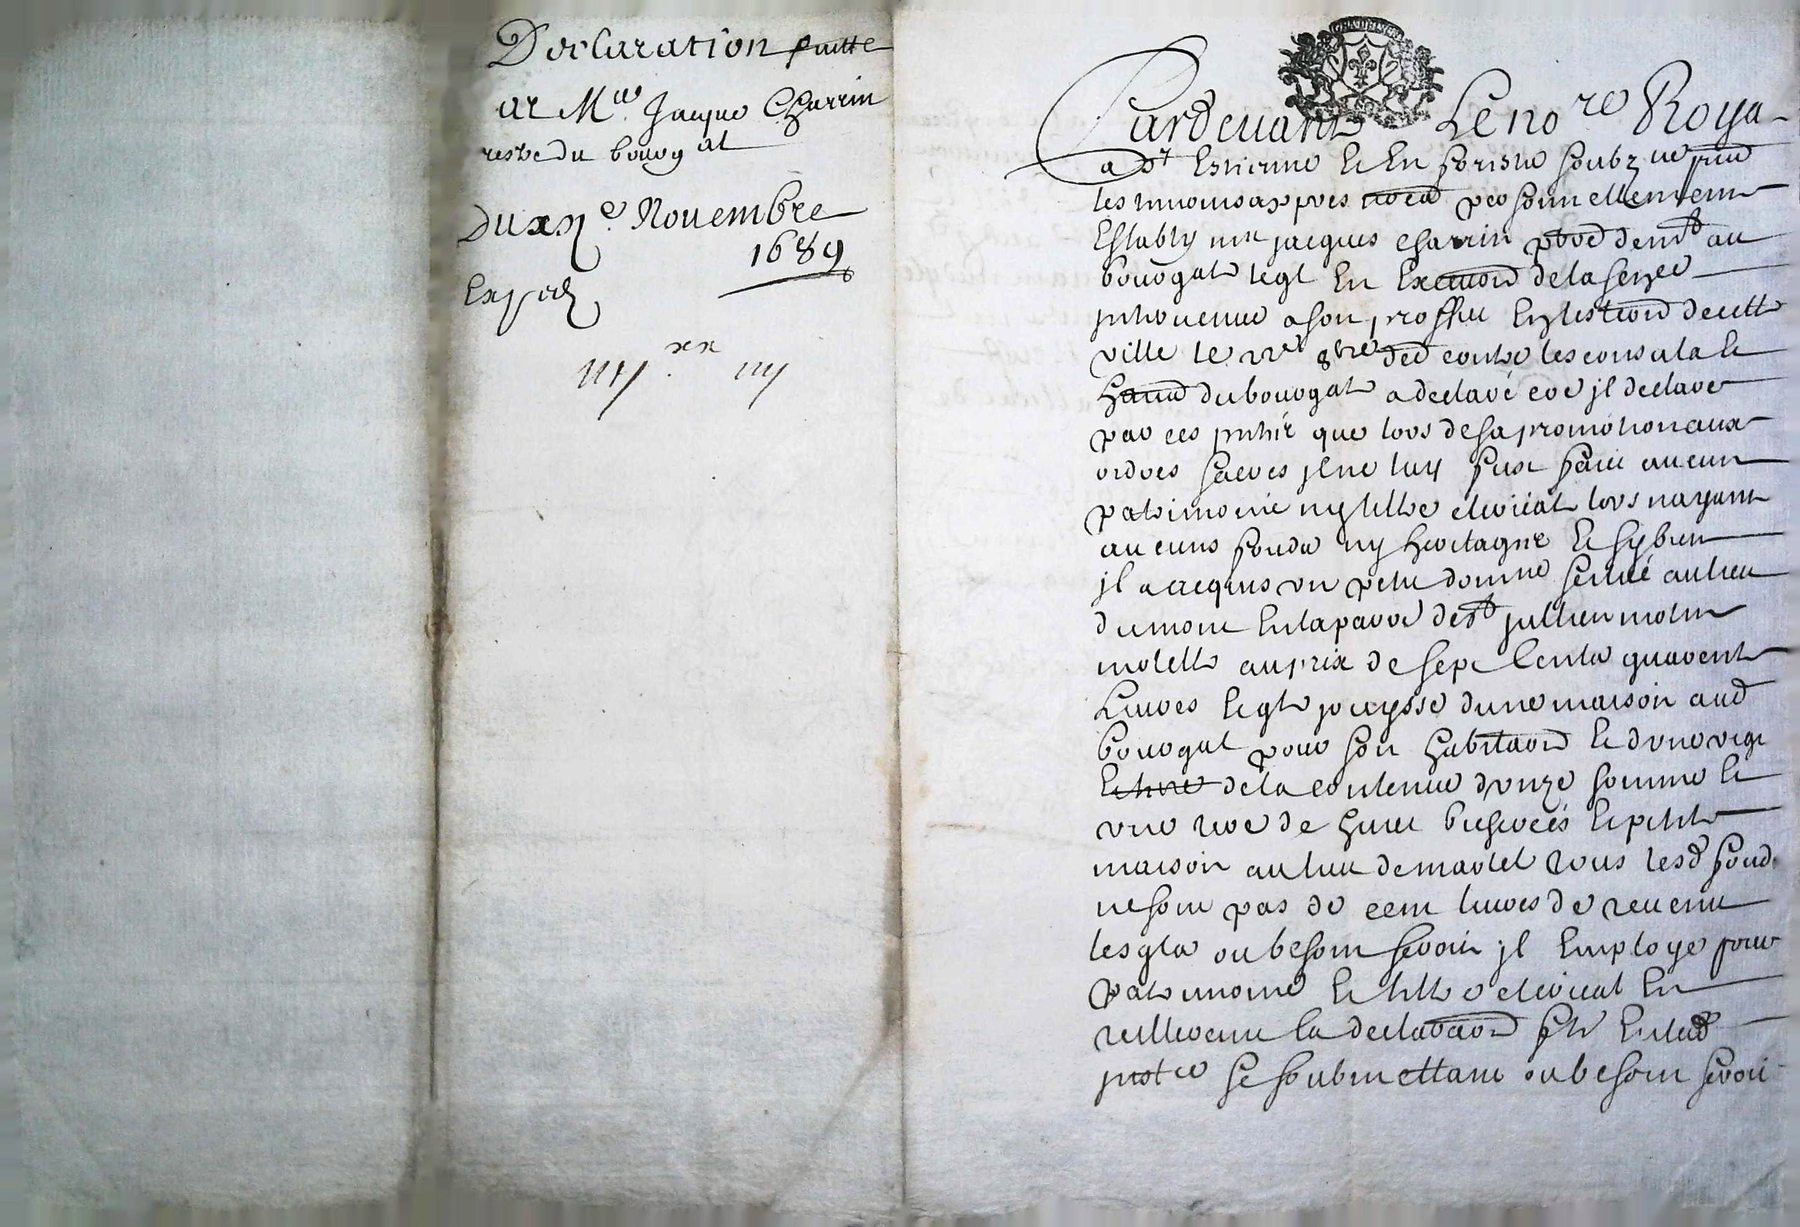 Declaration faitte
ar Mre Jacque Charrin
restre du bourgat
Du xije Novembre
1689
Exped
Pardevant Le nore Roya
a St Estienne et En foristz soubzne pnd
les tmoins apres nomd personnellement
Estably mre jacques charrin pbre de ma au
bourgat leql En Exeution de la senze
jntervenue a son proffit En lestion de cette
ville le 8bre der contre les consulz et
hantz du bourgat a declaré coe jl declare
par ces pntes que lors de sa promotion aux
ordres sacres jl ne luy fust faict aucun
patrimoine ny tiltre clerical lors nayant
aucuns fondz ny heritagne et sy bien
jl a acquis un petit domne scitué au lieu
du mont En la parre de St jullien molin
molette au prix de sept Centz quarente
Livres Et qte jouysse dune maison aud
bourgat pour son habitaon et dune vige
de la contenue donze homme et
une rive de huict bicherées Et petite
maison au lieu de marlet tous lesd fondz
ne sont pas de cent livres de revenu
lesqlz ou besoin seroit jl Employe pour
patrimoine Et tiltre clerical En
rellevement la declaraon fte En lad
justce se soubmettant ou besoin seroit